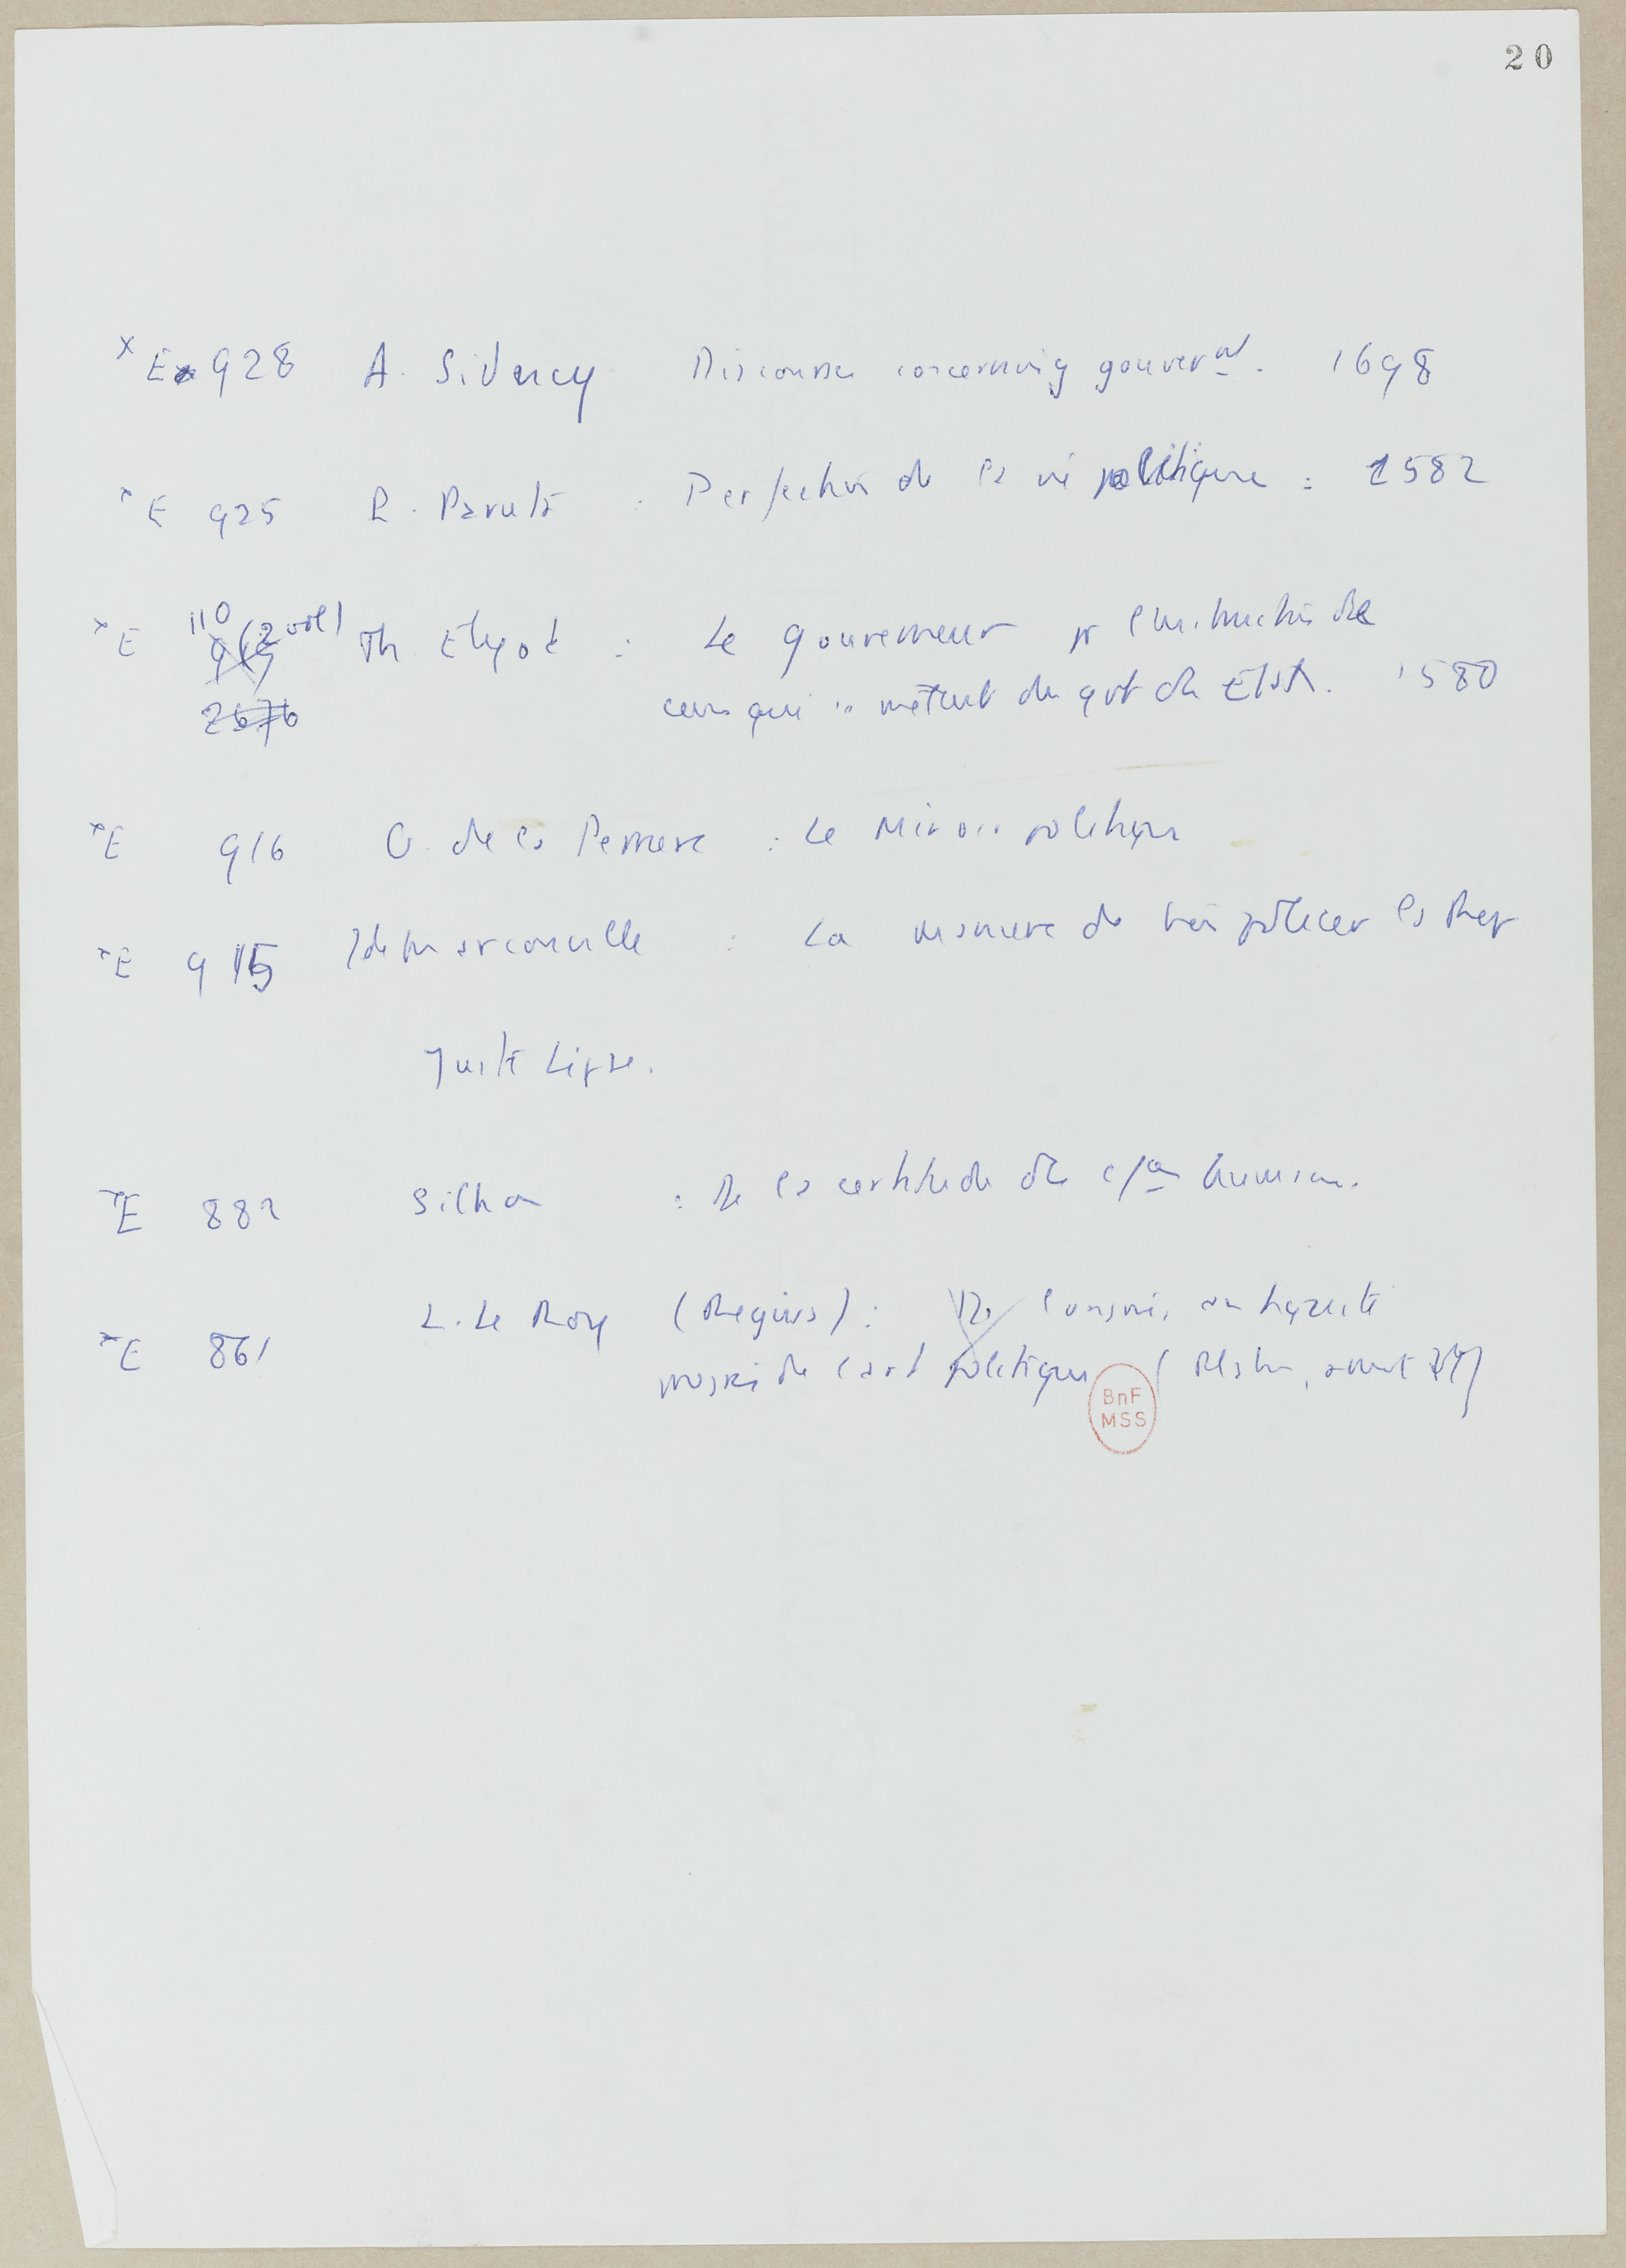 20
x E 928 A. Sidney Discourses concerning gouvernt. 1698
x E 925 P. Paruta : Perfection de la vie politique : 1582
x E 110 (2 vol) Th. Elyot : Le gouverneur pr l'instruction de
2676 ceux qui se mettent du gvt des Etats. 1580
x E 916 G. de la Perrière : Le Miroir politique
x E 915 J de Marconville : La manière de bien policer la Rep
Juste Lipse.
x E 882 Silhon : De la certitude des cces humaines.
x E 861 L. Le Roy (Regius) : De l'origine, antiquité
de l'art politique (Platon,
BnF
MSS